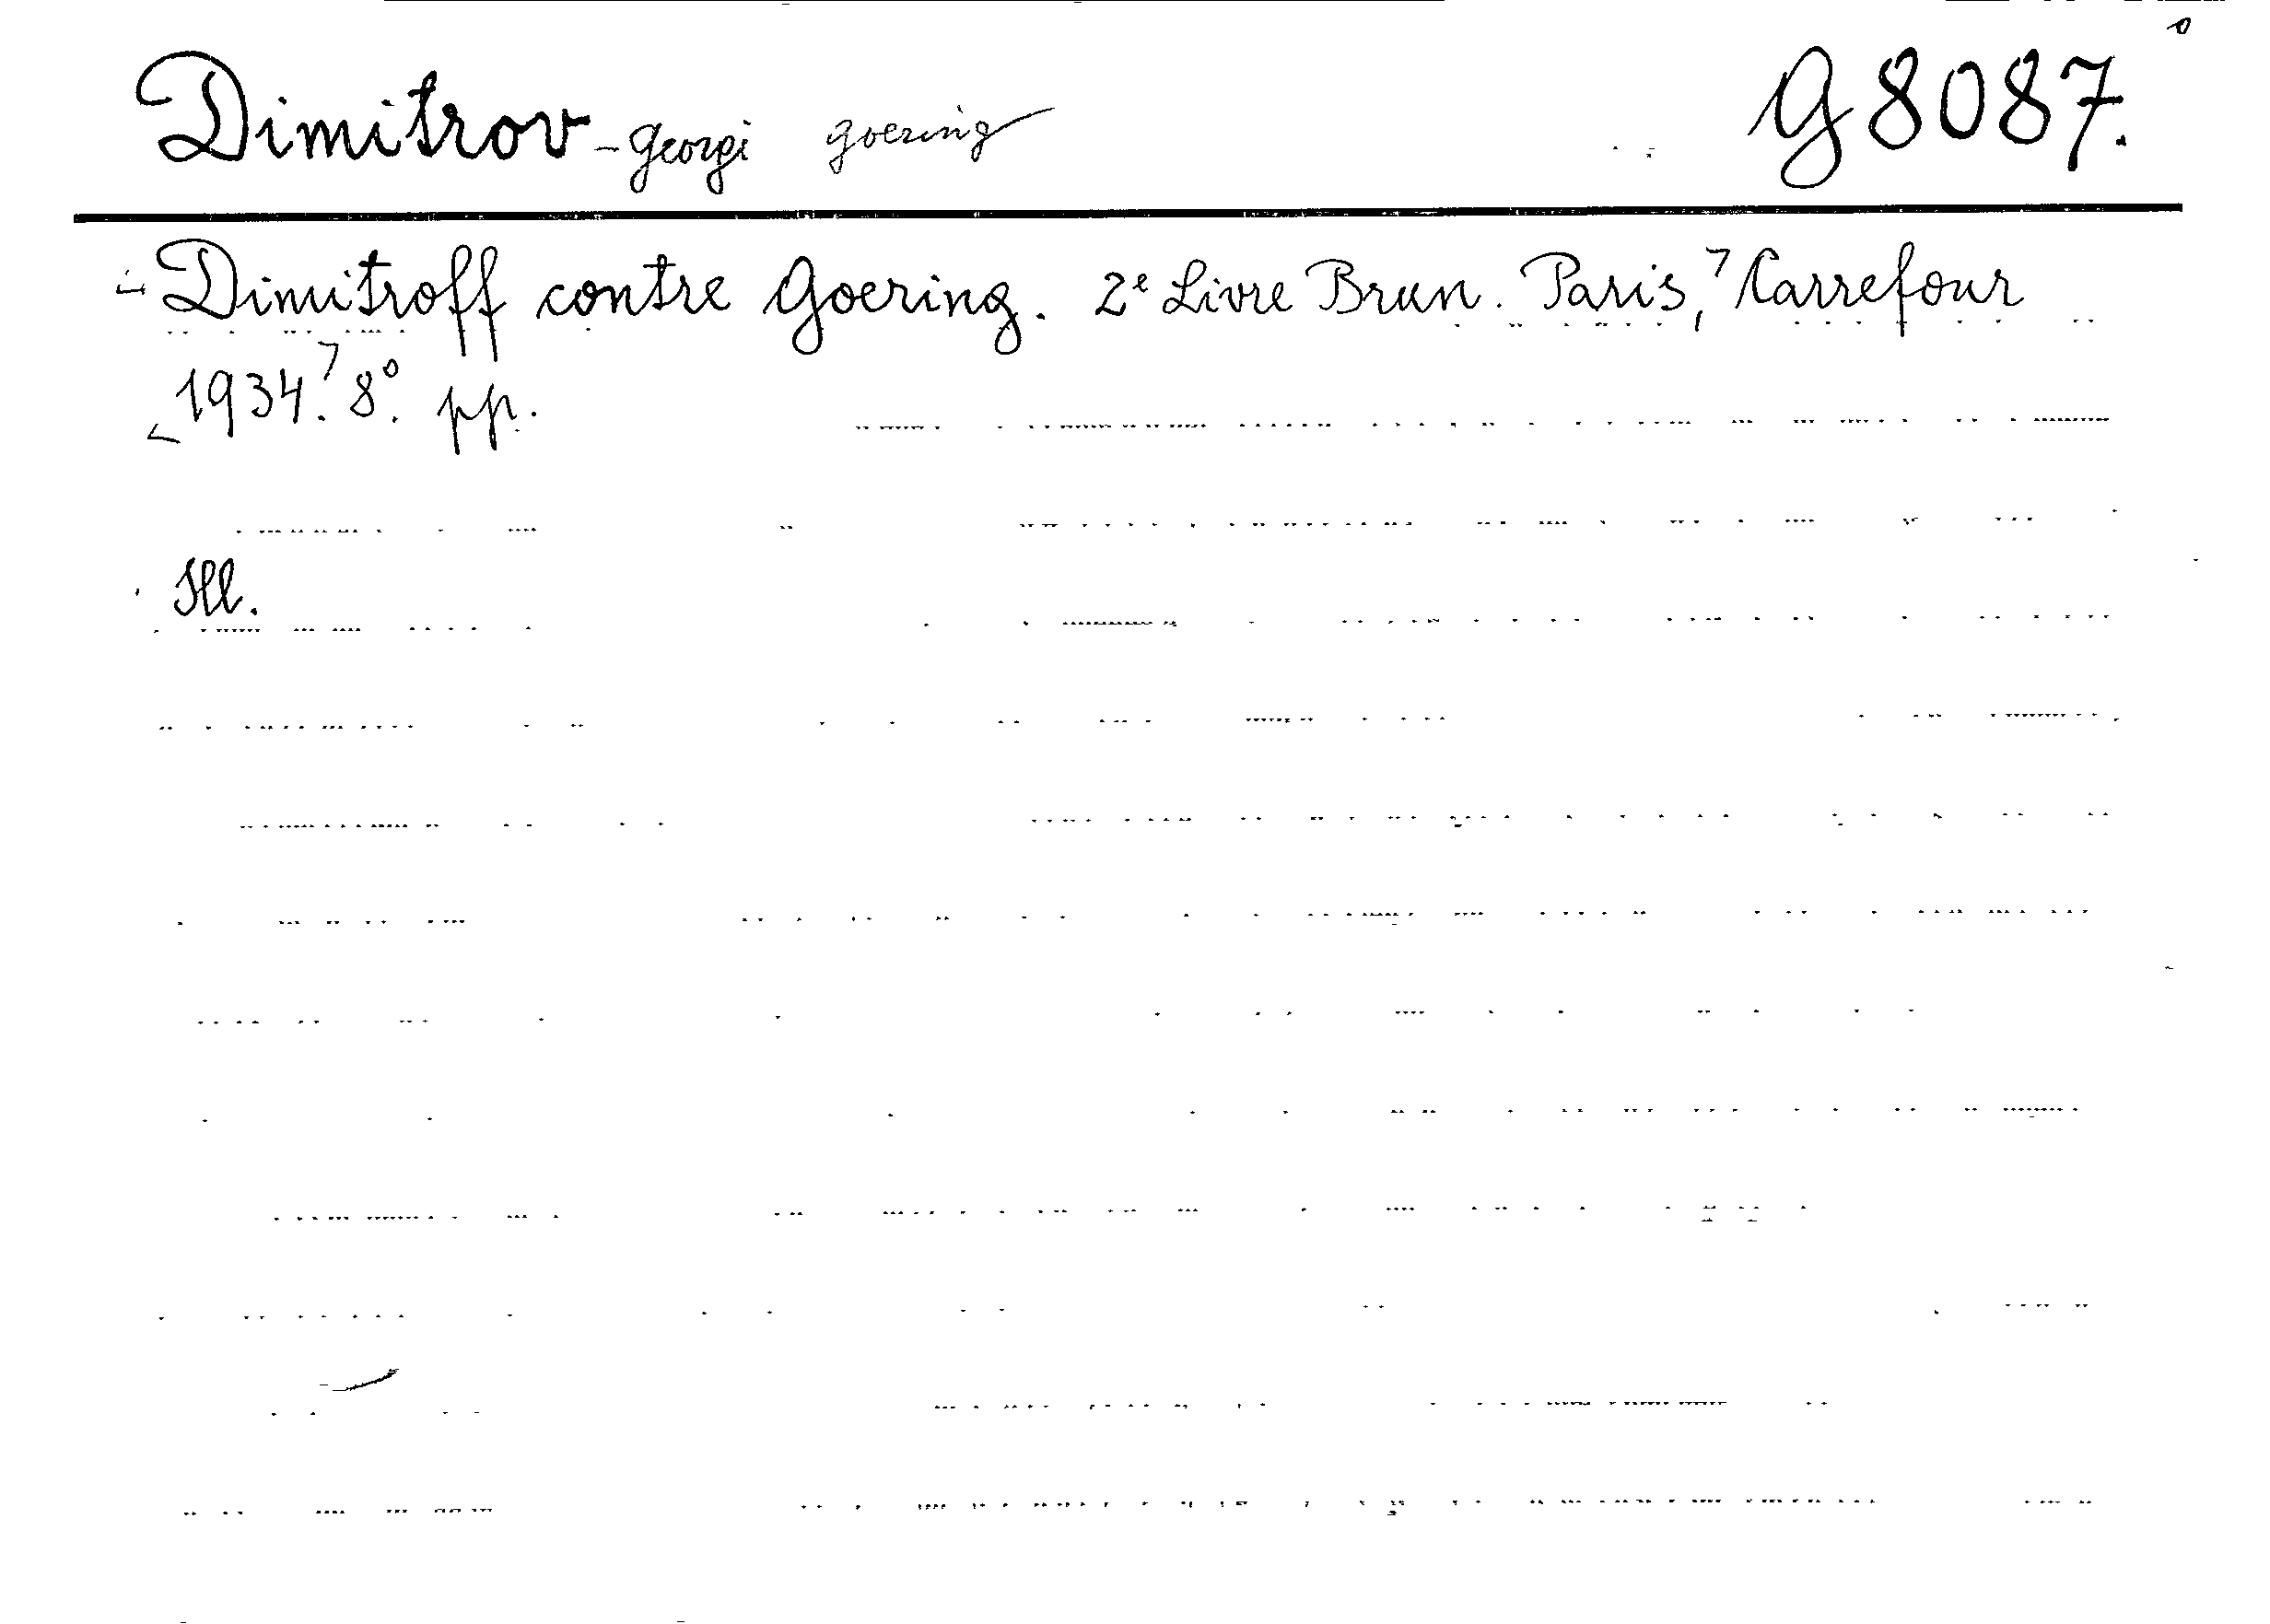 Dimitrov - Georgi Goering G 8087.
Dimitroff contre Goering. 2e Livre Brun. Paris, Carrefour
1934. 8°. pp.
Ill.